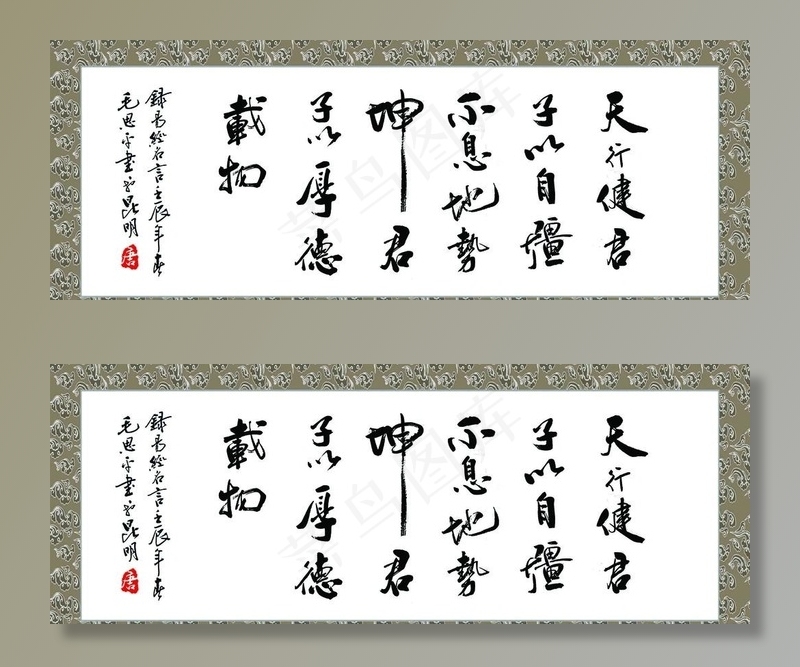 天行健君
子以自彊
不息地勢
坤君
子以厚德
載物
録易經名言壬辰年春
毛思平書於昆明
天行健君
子以自彊
不息地勢
坤君
子以厚德
載物
録易經名言壬辰年春
毛思平書於昆明
菜鸟图库